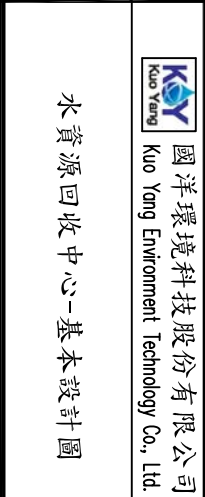 KY
Kuo Yang
國洋環境科技股份有限公司
Kuo Yang Environment Technology Co., Ltd.
水資源回收中心-基本設計圖